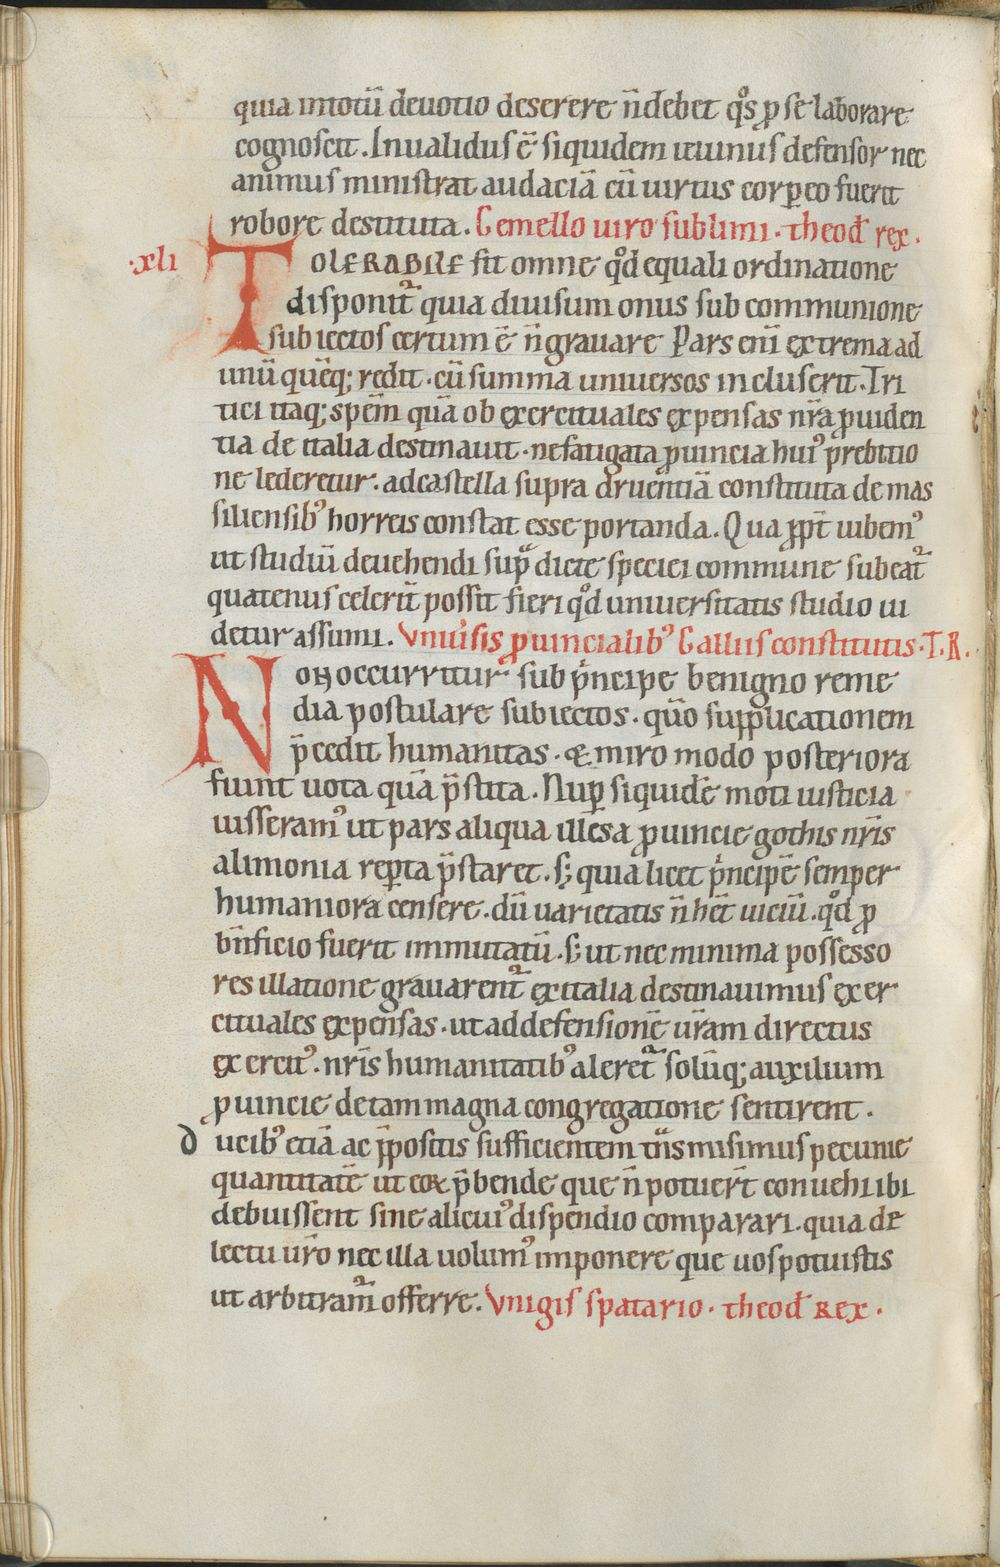 quia intotū deuotio deserere n̄debet q̊s ꝓ se laborare
cognoscit. Inualidus ē siquidem ieiunus defensor nec
animus ministrat audaciā cū uirtus corꝑeo fuerit
robore destituta. Gemello uiro sublimi. theod̄ rex.
.xli TOLERABILE fit omne q̊d equali ordinatione
disponit᷑ quia diuisum onus sub communione
subiectos certum ē n̄ grauare Pars enī extrema ad
unū quēq; redit. cū summa uniuersos incluserit. Tri
tici itaq; spēm quā ob exercituales expensas nr̄a ꝓuiden
tia de italia destinauit. ne fatigata ꝓuincia hui᾽ p̄rebitio
ne lederetur. ad castella supra druentiā constituta de mas
siliensib᾽ horreis constat esse portanda. Qua ꝓpt̄ iubem᾽
ut studiū deuehendi sup̄ dicte speciei commune subeat᷑
quatenus celerit̄ possit fieri q̊d uniuersitatis studio ui
detur assumi. Vniūsis ꝓuincialib᾽ Galliis constitutis. T. R.
NON occurritur sub p̓ncipe benigno reme
dia postulare subiectos. quō supplicationem
p̄cedit humanitas. & miro modo posteriora
fiunt uota quā p̄stita. Nuꝑ siquidē moti iusticia
iusseram᾽ ut pars aliqua illesa ꝓuincie gothis nr̄is
alimonia reꝑta p̄staret. s; quia licet p̓ncipē semper
humaniora censere. dū uarietatis n̄ het̄ uiciū. q̊d ꝓ
bn̄ficio fuerit immutatū. s; ut nec minima possesso
res illatione grauarent᷑ ex italia destinauimus exer
cituales expensas. ut ad defensionē ur̄am directus
exercit᾽. nr̄is humanitatib᾽ aleret᷑ solūq; auxilium
ꝓuincie de tam magna congregatione sentirent.
Ducib᾽ etiā ac p̄positis sufficientem tn̄smisimus pecunie
quantitatē ut eoꝝ p̄bende que n̄ potuert̄ conuehi ibi
debuissent sine alicui᾽ dispendio comparari. quia de
lectu ur̄o nec illa uolum᾽ imponere que uos potuistis
ut arbitram᷑ offerre. Vnigis spatario. theod̄ REX.